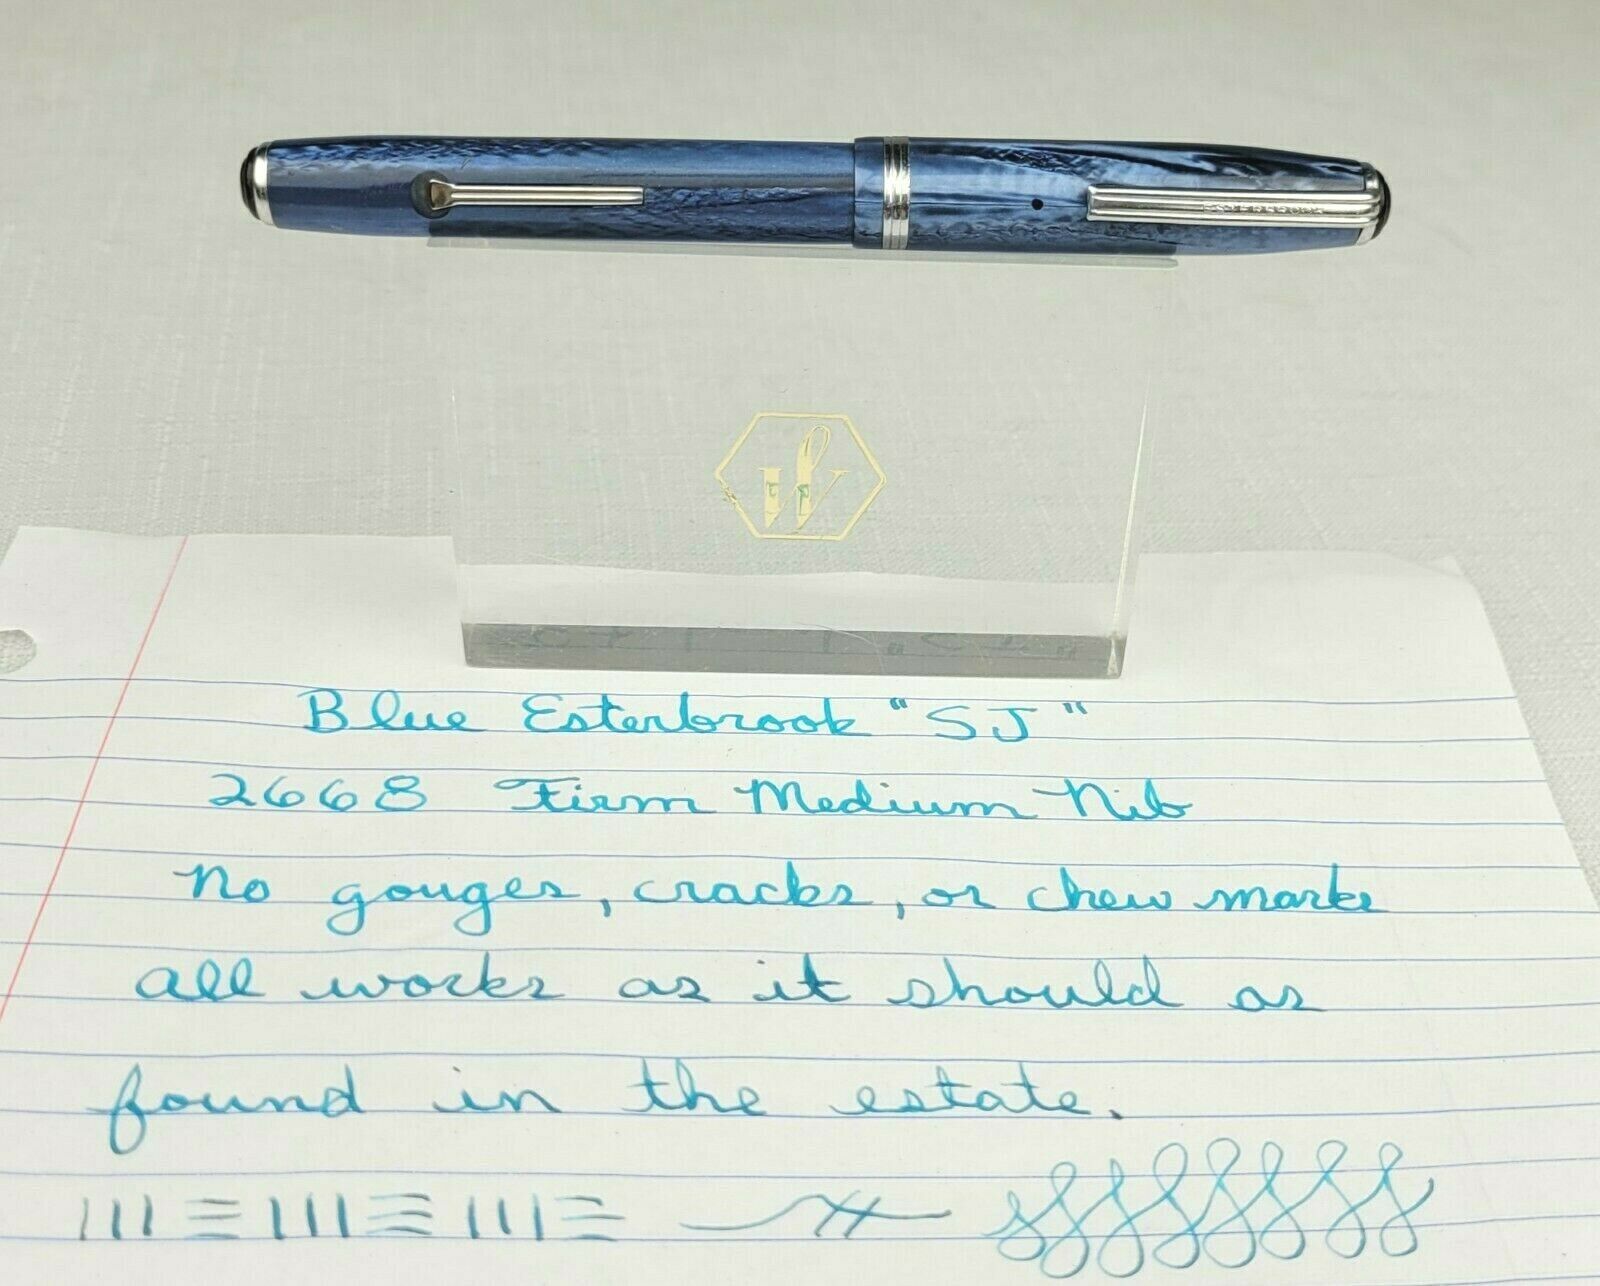 ESTERBROOK
W
Blue Esterbrook "SJ"
2668 Firm Medium Nib
No gouges, cracks, or chew marks
all works as it should as
found in the estate.